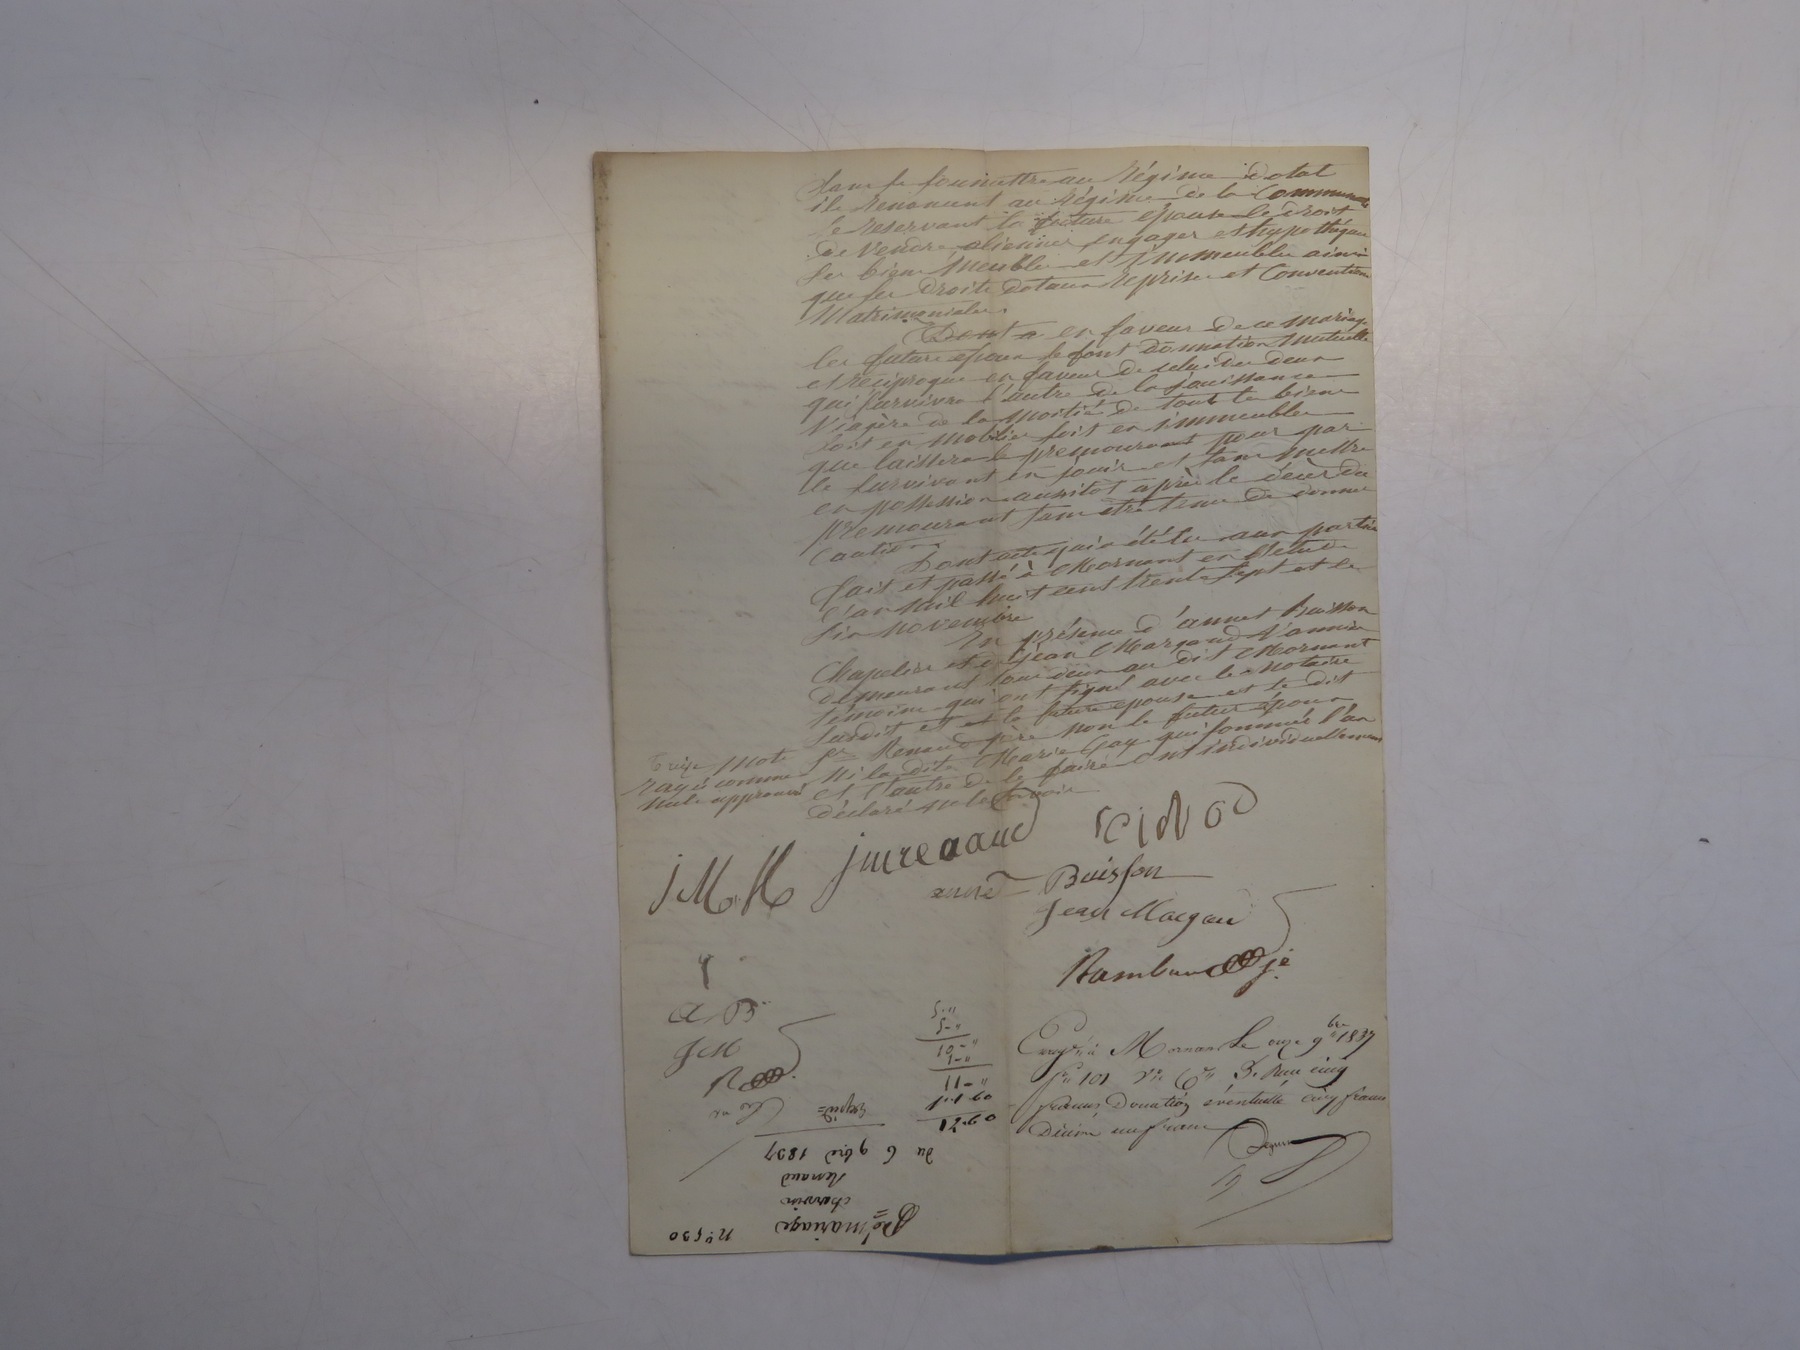 sans se soumettre au Régime dotal
ils renoncent au Régime de la Communauté
se réservant la future épouse le droit
de vendre aliener engager et hypothéquer
ses biens meubles et immeubles ainsi
que ses droits dotaux reprises et Conventions
Matrimoniales.
en faveur de ce mariage
les futurs époux se font donnation mutuelle
et réciproque en faveur de celui des deux
qui survivra l'autre de la jouissance
Viagère de la moitié de tous les biens
soit en mobilier soit en immeubles
que laissera le prémourant pour par
le survivant en jouir et sans mettre
en possession aussitot après le décès du
prémourant sans etre tenu de donner
Caution.
Dont acte qui a été lu aux parties
fait et passé à Mornant en l'étude
l'an Mil huit cent trente sept et le
six novembre
En présence d'annet Buisson
Chapelier et de Jean Margand
demeurant tous deux au dit Mornant
témoins qui ont signé avec le Notaire
susdit et la future épouse et le dit
Sr Renaud père non le futur époux
Ni la dite Marie Gay qui sommés l'un
et l'autre de le faire ont individuellement
déclaré ne le savoir
Treize mots
rayés comme
nuls approuvés
J M R
annet Buisson
Jean Margand
A B
J M
R
Enregtré à Mornant le onze 9bre 1837
fo 101 Vo Co 3. Reçu cinq
francs Donation éventuelle cinq francs
Décime un franc
5 "
5 - "
10 - "
1 - "
11 - "
Exped=
du 6 9bre 1837
Renaud
charvin
mariage
No 530